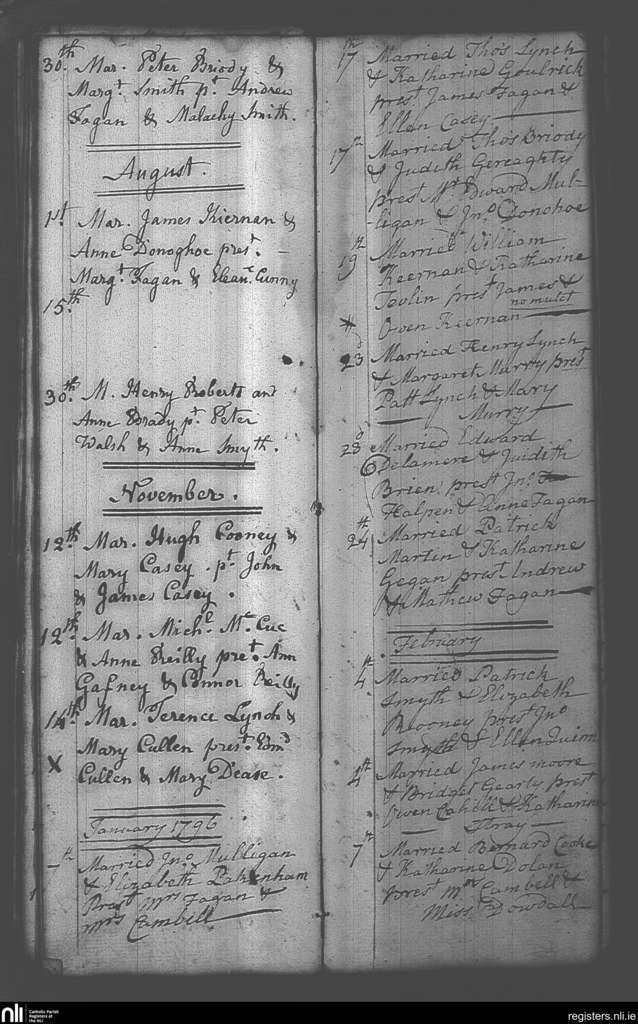 30th Mar. Peter Briody &
Margt. Smith pt. Andrew
Fagan & Malachy Smith.
August.
1st Mar. James Kiernan &
Anne Donoghoe prest. –
Margt. Fagan & Elean. Cunny
15th
30th M. Henry Roberts and
Anne Brady pt. Peter
Walsh & Anne Smyth.
November.
12th Mar. Hugh Cooney &
Mary Casey. pt. John
& James Casey.
12th Mar. Michl. Mc. Cue
& Anne Reilly prest. Ann
Gafney & Connor Reilly
14th Mar. Terence Lynch &
Mary Cullen prest. Edmd
X Cullen & Mary Dease.
January 1796
Married Jno. Mulligan
& Elizabeth Pakenham
Prest Mrs Fagan &
Mrs Cambell
17th Married Thos Lynch
& Katharine Goulrick
prest. James Fagan &
Ellen Casey
17th Married Thos Briody
& Judith Gereaghty
prest Mr. Edward Mul-
ligan & Jno. Donohoe
19th Married William
Keernan & Katharine
Tovlin prest James &
no mulct
Owen Keernan
23d Married Henry Lynch
& Margaret Murry prest
Patt Lynch & Mary
Murry
23d Married Edward
Delamere & Judith
Brien prest Jno.
Halpen & Anne Fagan
24th Married Patrick
Martin & Katharine
Gegan prest Andrew
& Mathew Fagan
February
4th Married Patrick
Smyth & Elizabeth
Blooney prest Jno
Smyth & Ellen Quinn
4th Married James moore
& Bridget Gearty prest
Owen Cahill & Katharine
Fray
7th Married Bernard Cooke
& Katharine Dolan
prest Mr Cambell &
Miss Dowdall
nli
Catholic Parish
Registers at
the NLI
registers.nli.ie